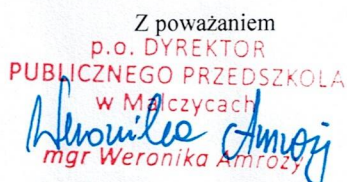 Z poważaniem
p.o. DYREKTOR
PUBLICZNEGO PRZEDSZKOLA
w Malczycach
Weronika Amroży
mgr Weronika Amroży